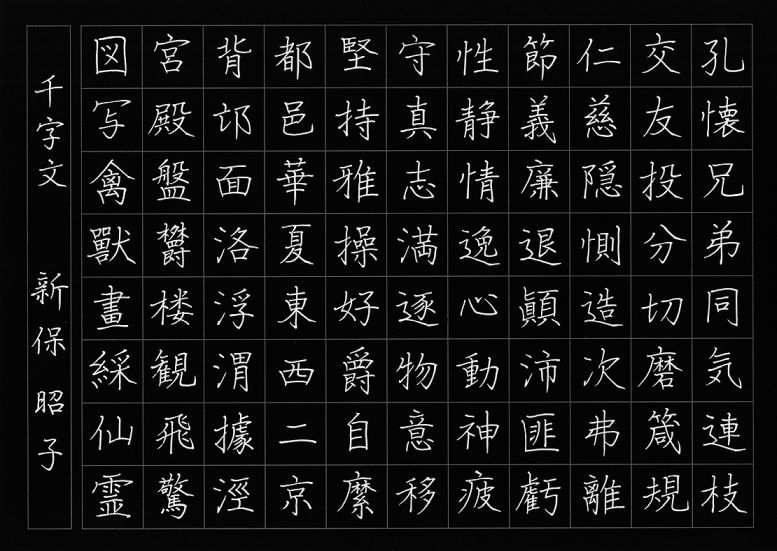 孔懐兄弟同気連枝
交友投分切磨箴規
仁慈隠惻造次弗離
節義廉退顛沛匪虧
性静情逸心動神疲
守真志満逐物意移
堅持雅操好爵自縻
都邑華夏東西二京
背邙面洛浮渭據涇
宮殿盤欝楼観飛驚
図写禽獸畫綵仙霊
千字文 新保昭子